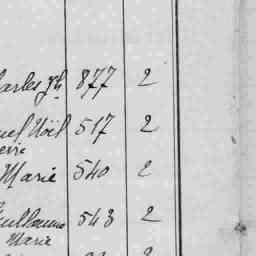 arles Jh 877 2
uel Noël 517 2
erre
Marie 540 2
uillaume 543 2
Marie